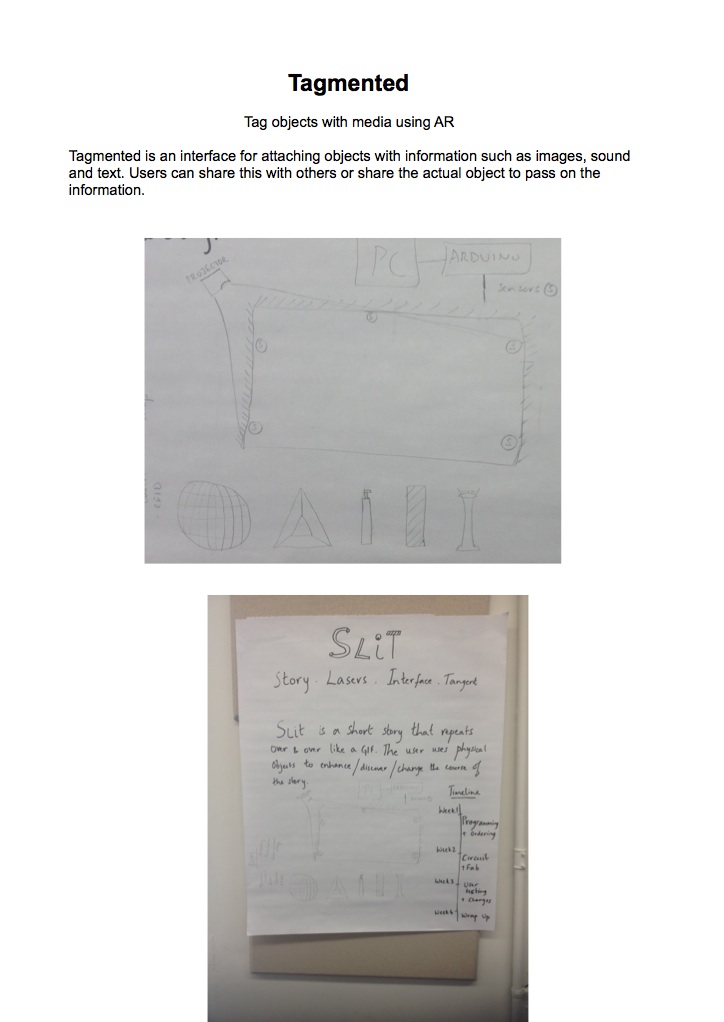 Tagmented
Tag objects with media using AR
Tagmented is an interface for attaching objects with information such as images, sound
and text. Users can share this with others or share the actual object to pass on the
information.
PROJECTOR
PC
ARDUINO
sensors S
S
S
S
S
S
RFID
SLiT
Story . Lasers . Interface . Tangent
SLit is a short story that repeats
over & over like a GIF. The user uses physical
objects to enhance/discover/change the course of
the story.
PC
Timeline
Week1
Programming
+ ordering
Week2
Circuit
+ Fab
Week3
User
testing
+ changes
Week4
Wrap Up